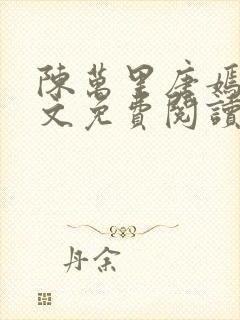 陳萬里唐嫣
文免費閱讀
丹余